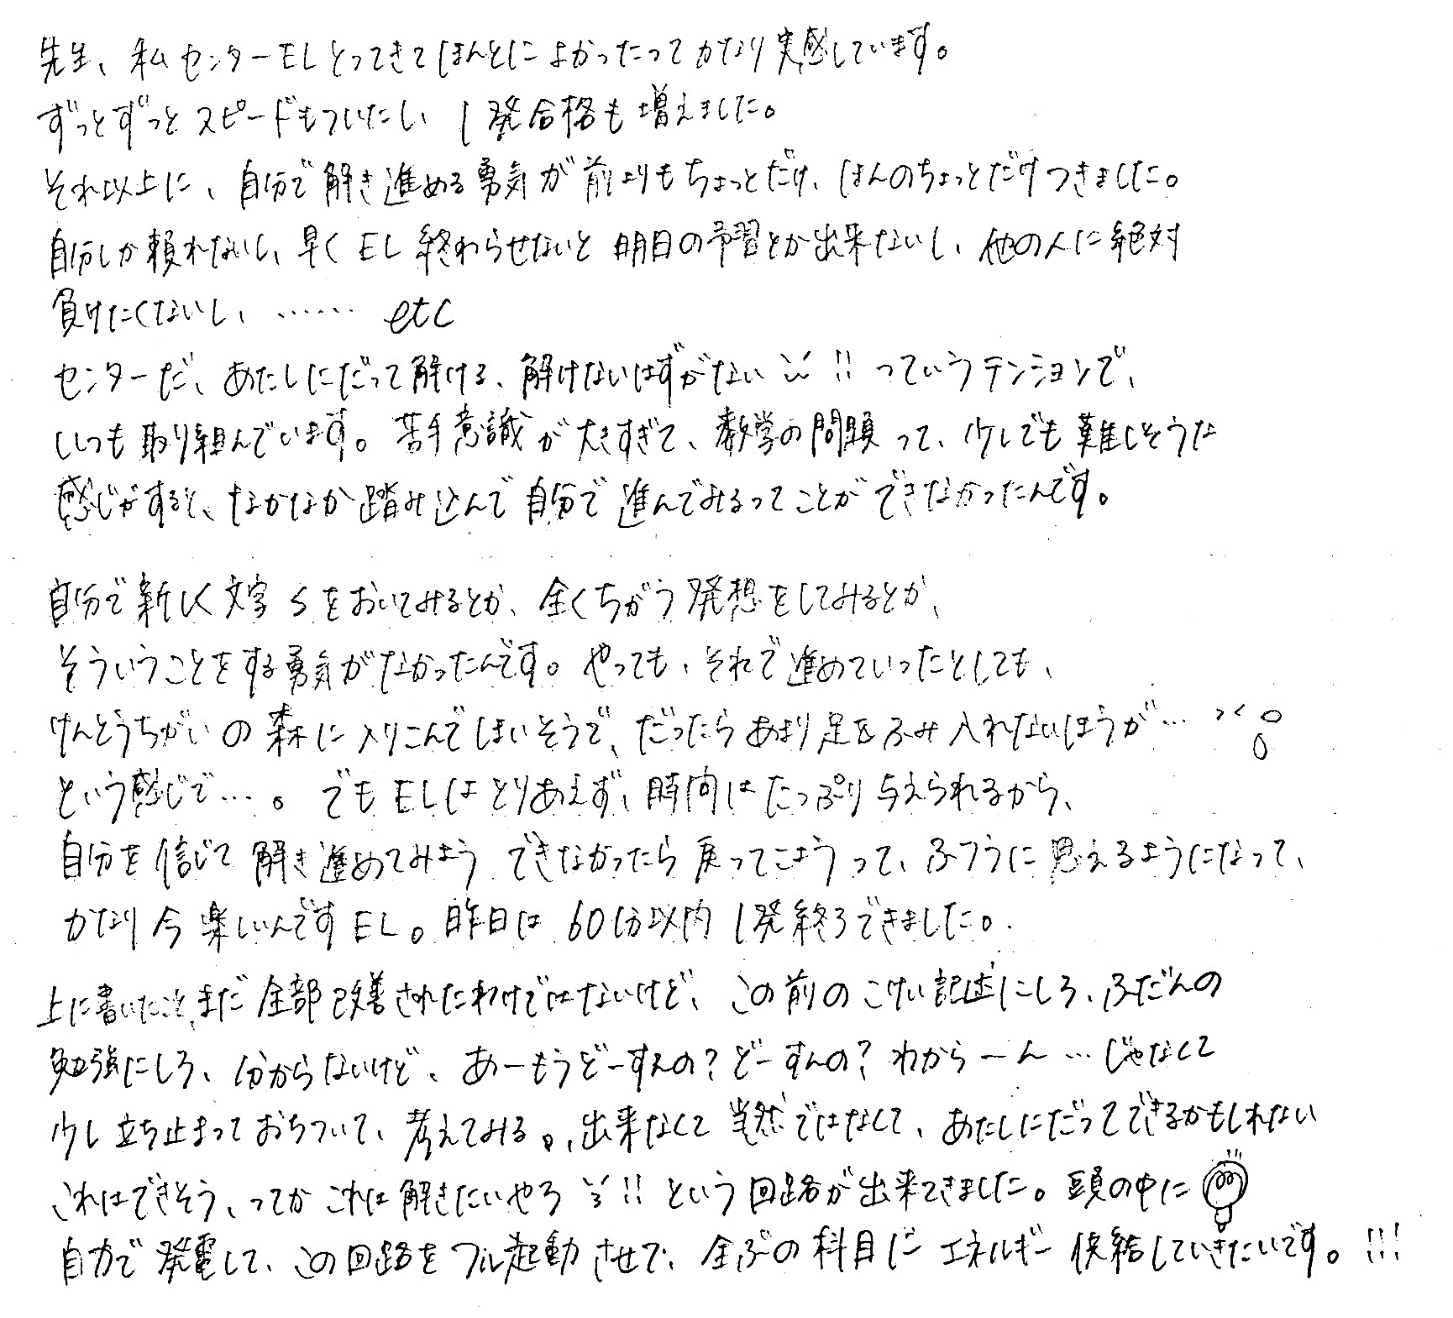 先生、私センターELとってきてほんとによかったってかなり実感しています。
ずっとずっとスピードもついたし、1発合格も増えました。
それ以上に、自分で解き進める勇気が前よりもちょっとだけ、ほんのちょっとだけつきました。
自分しか頼れないし、早くEL終わらせないと明日の予習とか出来ないし、他の人に絶対
負けたくないし、…… etc
センターだ、あたしにだって解ける、解けないはずがない !! っていうテンションで、
いつも取り組んでいます。苦手意識が大きすぎて、数学の問題って、少しでも難しそうな
感じがすると、なかなか踏み込んで自分で進んでみるってことができなかったんです。
自分で新しく文字sをおいてみるとか、全くちがう発想をしてみるとか、
そういうことをする勇気がなかったんです。やっても、それで進めていったとしても、
けんとうちがいの森に入りこんでしまいそうで、だったらあまり足をふみ入れないほうが…
という感じで…。でもELはとりあえず、時間はたっぷり与えられるから、
自分を信じて解き進めてみよう できなかったら戻ってこようって、ふつうに思えるようになって、
かなり今楽しいんですEL。昨日は60分以内1発終了できました。
上に書いたこと、まだ全部改善されたわけではないけど、この前のこけい記述にしろ、ふだんの
勉強にしろ、分からないけど、あーもうどーすんの?どーすんの?わからーん…じゃなくて
少し立ち止まっておちついて、考えてみる。出来なくて当然ではなくて、あたしにだってできるかもしれない
これはできそう、ってかこれは解きたいやろ !! という回路が出来てきました。頭の中に
自力で発電して、この回路をフル起動させて、全ぶの科目にエネルギー供給していきたいです。!!!